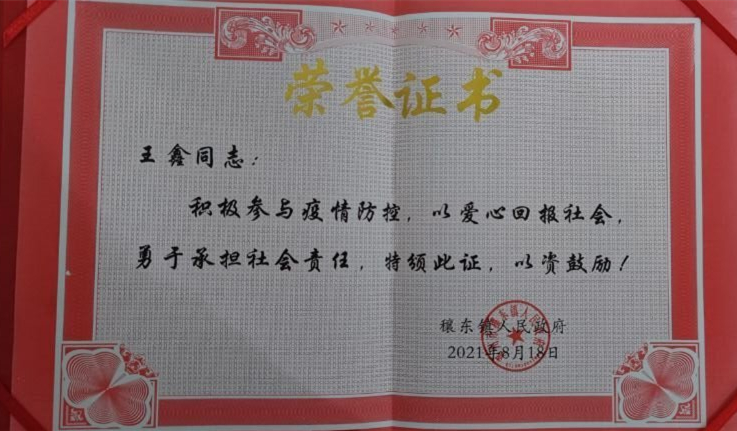 荣誉证书
王鑫同志：
积极参与疫情防控，以爱心回报社会，
勇于承担社会责任，特颁此证，以资鼓励！
穰东镇人民政府
2021年8月18日